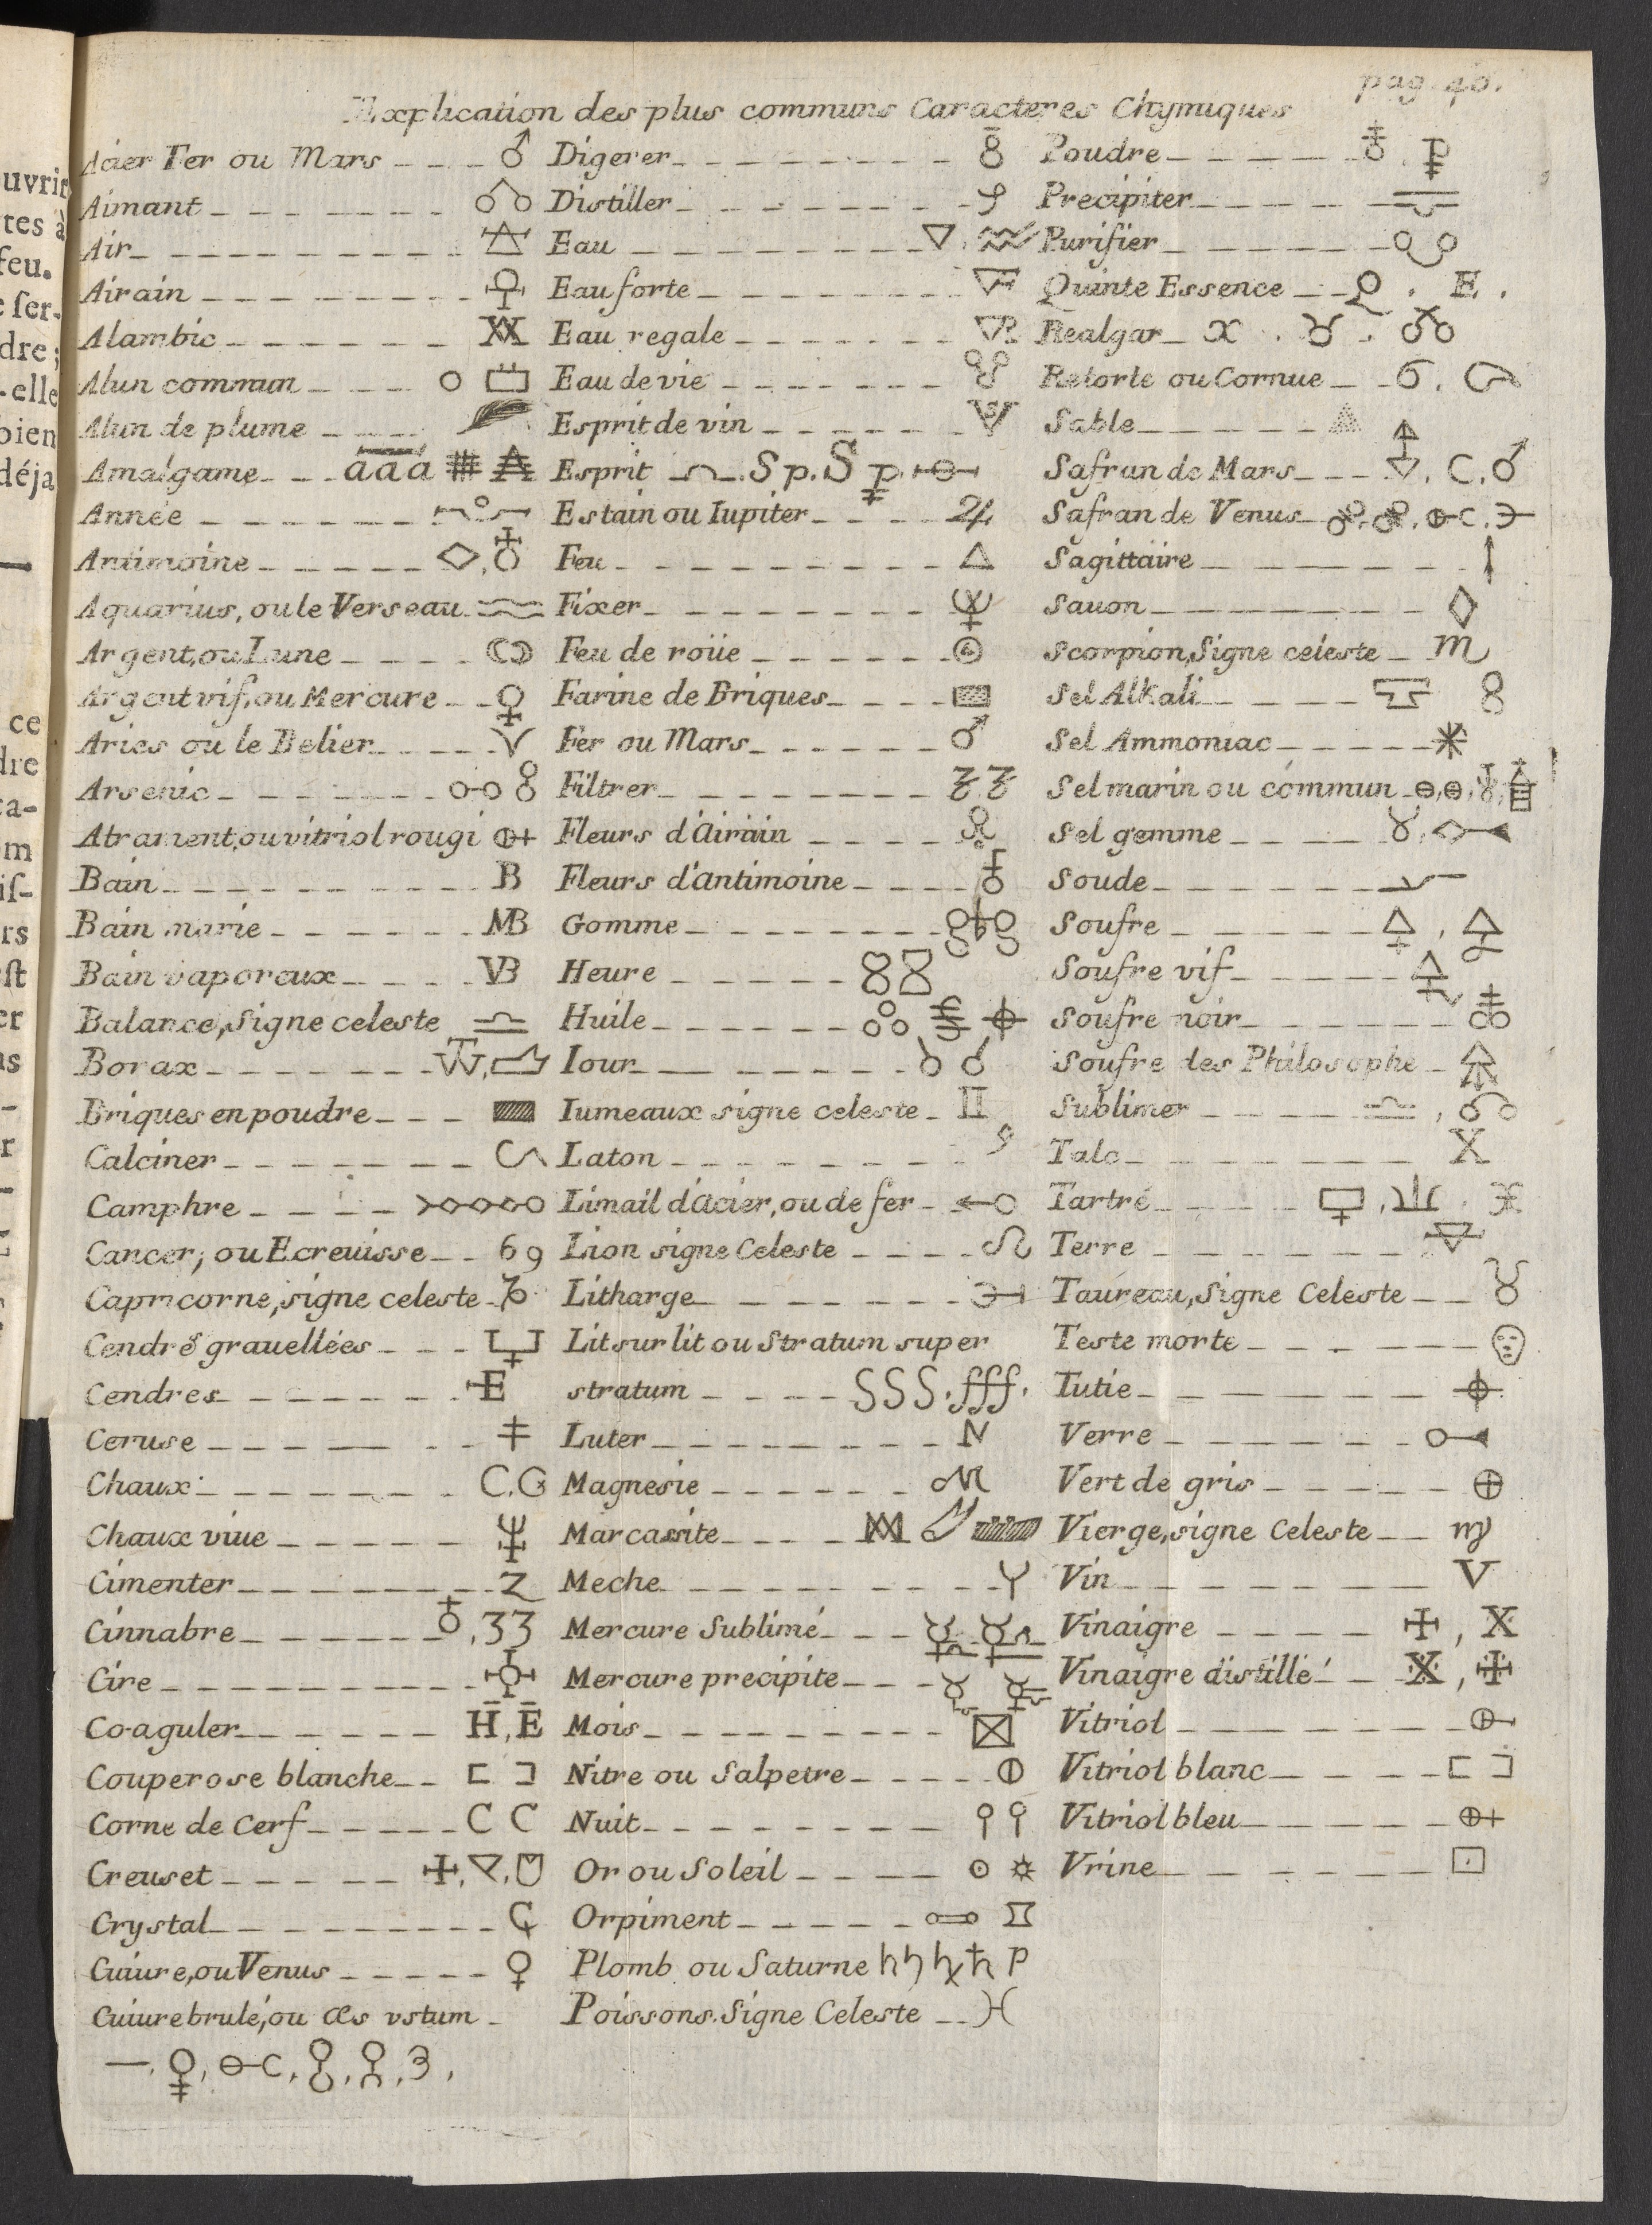 pag. 40.
Explication des plus communs Caracteres Chymiques
Acier Fer ou Mars ♂
Aimant
Air
Airain
Alambic
Alun commun
Alun de plume
Amalgame aaa
Année
Antimoine
Aquarius, ou le Verseau
Argent, ou Lune
Argent vif, ou Mercure
Aries ou le Belier
Arsenic
Atrament, ou vitriol rougi
Bain B
Bain marie MB
Bain vaporeux VB
Balance, Signe celeste
Borax
Briques en poudre
Calciner
Camphre
Cancer, ou Ecreuisse 69
Capricorne, signe celeste
Cendres grauellées
Cendres E
Ceruse
Chaux C. G
Chaux viue
Cimenter Z
Cinnabre , 33
Cire
Co-aguler H, E
Couperose blanche
Corne de Cerf C C
Creuset
Crystal
Cuiure, ou Venus ♀
Cuiure brulé, ou æs vstum
Digerer
Distiller
Eau
Eau forte
Eau regale
Eau de vie
Esprit de vin
Esprit Sp. S
Estain ou Iupiter ♃
Feu △
Fixer
Feu de roüe
Farine de Briques
Fer ou Mars ♂
Filtrer
Fleurs d'Airain
Fleurs d'antimoine
Gomme
Heure
Huile
Iour
Iumeaux signe celeste ♊
Laton
Limail d'Acier, ou de fer
Lion signe Celeste ♌
Litharge
Lit sur lit ou Stratum super
stratum SSS. fff.
Luter
Magnesie
Marcassite
Meche
Mercure Sublimé
Mercure precipite
Mois
Nitre ou Salpetre
Nuit
Or ou Soleil ☉
Orpiment
Plomb ou Saturne ♄ P
Poissons. Signe Celeste ♓
Poudre
Precipiter
Purifier
Quinte Essence . E .
Realgar
Retorte ou Cornue
Sable
Safran de Mars , C, ♂
Safran de Venus
Sagittaire
Sauon
Scorpion, Signe celeste ♏
Sel Alkali
Sel Ammoniac
Sel marin ou commun
Sel gemme
Soude
Soufre
Soufre vif
Soufre noir
Soufre des Philosophe
Sublimer
Talc X
Tartre
Terre
Taureau, Signe Celeste ♉
Teste morte
Tutie
Verre
Vert de gris ⊕
Vierge, signe Celeste ♍
Vin V
Vinaigre , X
Vinaigre distillé
Vitriol
Vitriol blanc
Vitriol bleu
Vrine
uvrir
tes à
feu.
e ſer-
dre;
-elle
bien
déja
ce
dre
ca-
m
iſ-
rs
ſt
er
as
r